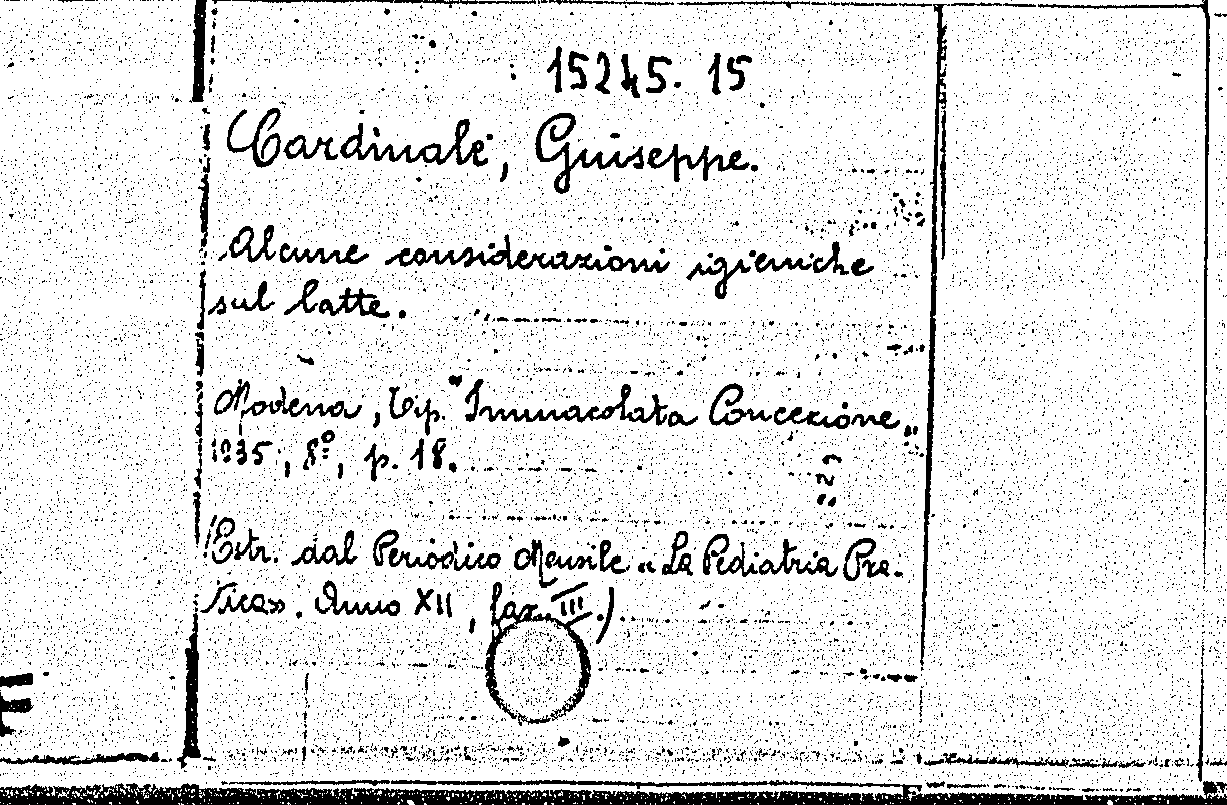 15245. 15
Cardinale, Guiseppe.
Alcune considerazioni igieniche
sul latte.
Modena, Tip. "Immacolata Concezione„
1935, 8º, p. 18.
(Estr. dal Periodico Mensile «La Pediatria Pra-
tica». Anno XII, fasc. III.)